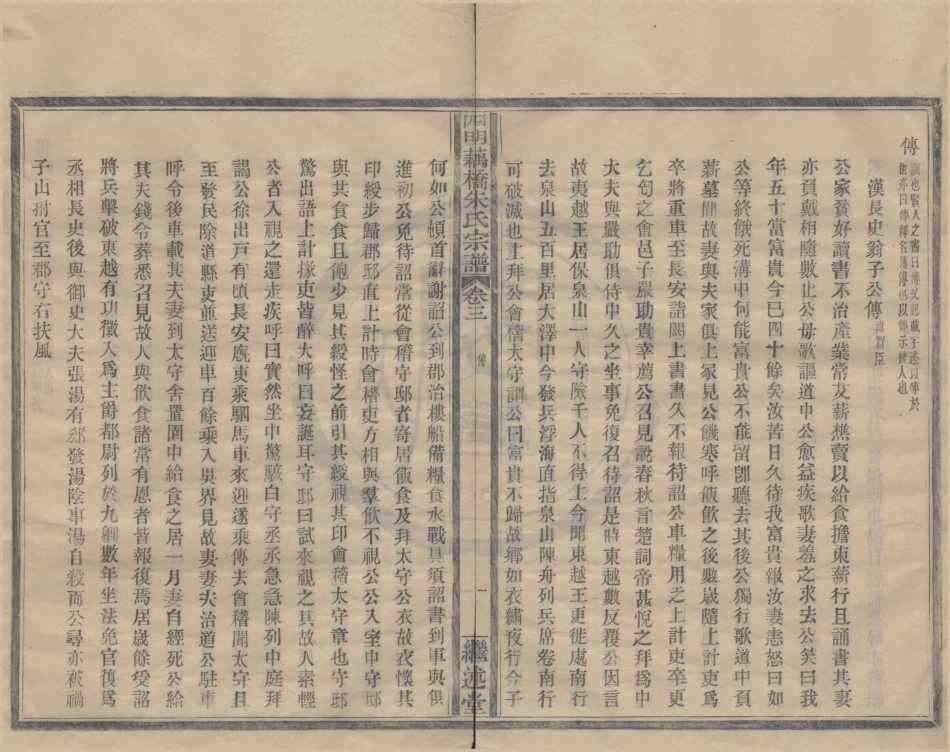 傳
訓也賢人之書曰傳又記載事迹以傳於
世亦曰傳釋名傳傳也以傳示後人也
漢長史翁子公傳
諱買臣
公家貧好讀書不治產業常艾薪樵賣以給食擔束薪行且誦書其妻
亦負戴相隨數止公毋歌謳道中公愈益疾歌妻羞之求去公笑曰我
年五十當富貴今已四十餘矣汝苦日久待我富貴報汝妻恚怒曰如
公等終餓死溝中何能富貴公不能留卽聽去其後公獨行歌道中負
薪墓間故妻與夫家俱上冢見公饑寒呼飯飲之後數歲隨上計吏爲
卒將重車至長安詣闕上書書久不報待詔公車糧用乏上計吏卒更
乞匄之會邑子嚴助貴幸薦公召見說春秋言楚詞帝甚悅之拜爲中
大夫與嚴助俱侍中久之坐事免復召待詔是時東越數反覆公因言
故夷越王居保泉山一人守險千人不得上今聞東越王更徙處南行
去泉山五百里居大澤中今發兵浮海直指泉山陳舟列兵席卷南行
可破滅也上拜公會稽太守謂公曰富貴不歸故鄉如衣繡夜行今子
四明藕橋朱氏宗譜
卷三
傳
一
繼述堂
何如公頓首辭謝詔公到郡治樓船備糧食水戰具須詔書到軍與俱
進初公免待詔常從會稽守邸者寄居飯食及拜太守公衣故衣懷其
印綬步歸郡邸直上計時會稽吏方相與羣飲不視公公入室中守邸
與共食食且飽少見其綬怪之前引其綬視其印會稽太守章也守邸
驚出語上計掾吏皆醉大呼曰妄誕耳守邸曰試來視之其故人素輕
公者入視之還走疾呼曰實然坐中驚駭白守丞丞急急陳列中庭拜
謁公徐出戶有頃長安廄吏乘駟馬車來迎遂乘傳去會稽聞太守且
至發民除道縣吏並送迎車百餘乘入吳界見故妻妻夫治道公駐車
呼令後車載其夫妻到太守舍置園中給食之居一月妻自經死公給
其夫錢令葬悉召見故人與飲食諸常有恩者皆報復焉居歲餘受詔
將兵擊破東越有功徵入爲主爵都尉列於九卿數年坐法免官復爲
丞相長史後與御史大夫張湯有郤發湯陰事湯自殺而公尋亦被禍
子山拊官至郡守右扶風